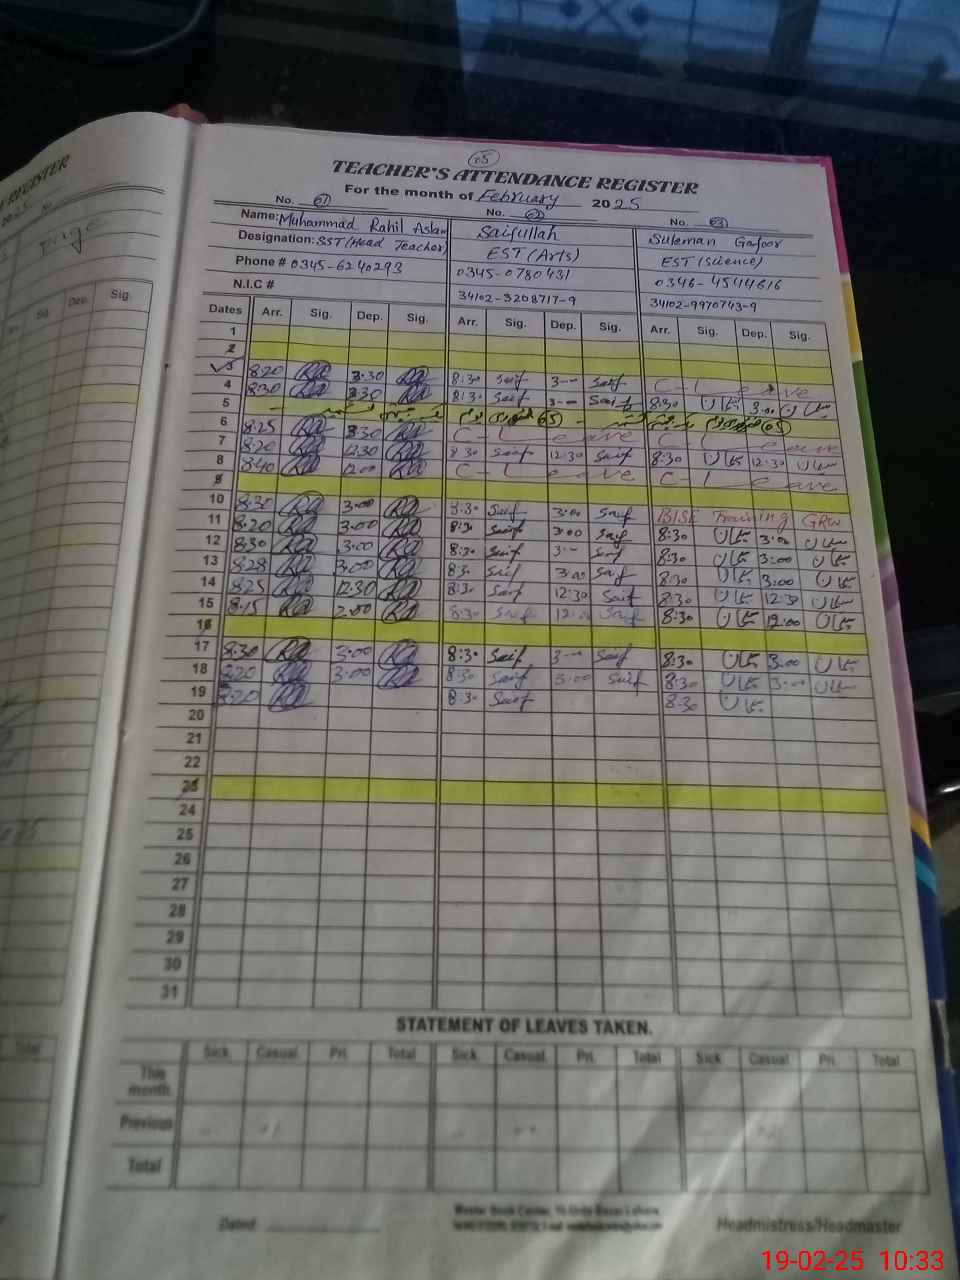 05
TEACHER'S ATTENDANCE REGISTER
For the month of February 2025
No. 61 No. 62 No. 63
Name: Muhammad Rahil Aslam Saifullah Suleman Gafoor
Designation: SST (Head Teacher) EST (Arts) EST (Science)
Phone # 0345-6240293 0345-0780431 0346-4544616
N.I.C # 34102-3208717-9 34102-9970743-9
Dates Arr. Sig. Dep. Sig. Arr. Sig. Dep. Sig. Arr. Sig. Dep. Sig.
1
2
3 8:20 3:30 8:30 Saif 3-- Saif C-Leave
4 8:30 3:30 8:30 Saif 3-- Saif 8:30 3:00
5
6 8:25 3:30 C-Leave C-Leave
7 8:20 12:30 8:30 Saif 12:30 Saif 8:30 12:30
8 8:40 12:00 C-Leave C-Leave
9
10 8:30 3:00 8:30 Saif 3:00 Saif BISE Training GRW
11 8:20 3:00 8:30 Saif 3:00 Saif 8:30 3:00
12 8:30 3:00 8:30 Saif 3-- Saif 8:30 3:00
13 8:28 3:00 8:30 Saif 3:00 Saif 8:30 3:00
14 8:25 12:30 8:30 Saif 12:30 Saif 8:30 12:30
15 8:15 2:00 8:30 Saif 12:00 Saif 8:30 12:00
16
17 8:30 3:00 8:30 Saif 3-- Saif 8:30 3:00
18 8:20 3:00 8:30 Saif 3:00 Saif 8:30 3:00
19 8:20 8:30 Saif 8:30
20
21
22
23
24
25
26
27
28
29
30
31
STATEMENT OF LEAVES TAKEN.
Sick Casual Pri. Total Sick Casual Pri. Total Sick Casual Pri. Total
This month.
Previous
Total
Dated:
Headmistress/Headmaster
19-02-25 10:33